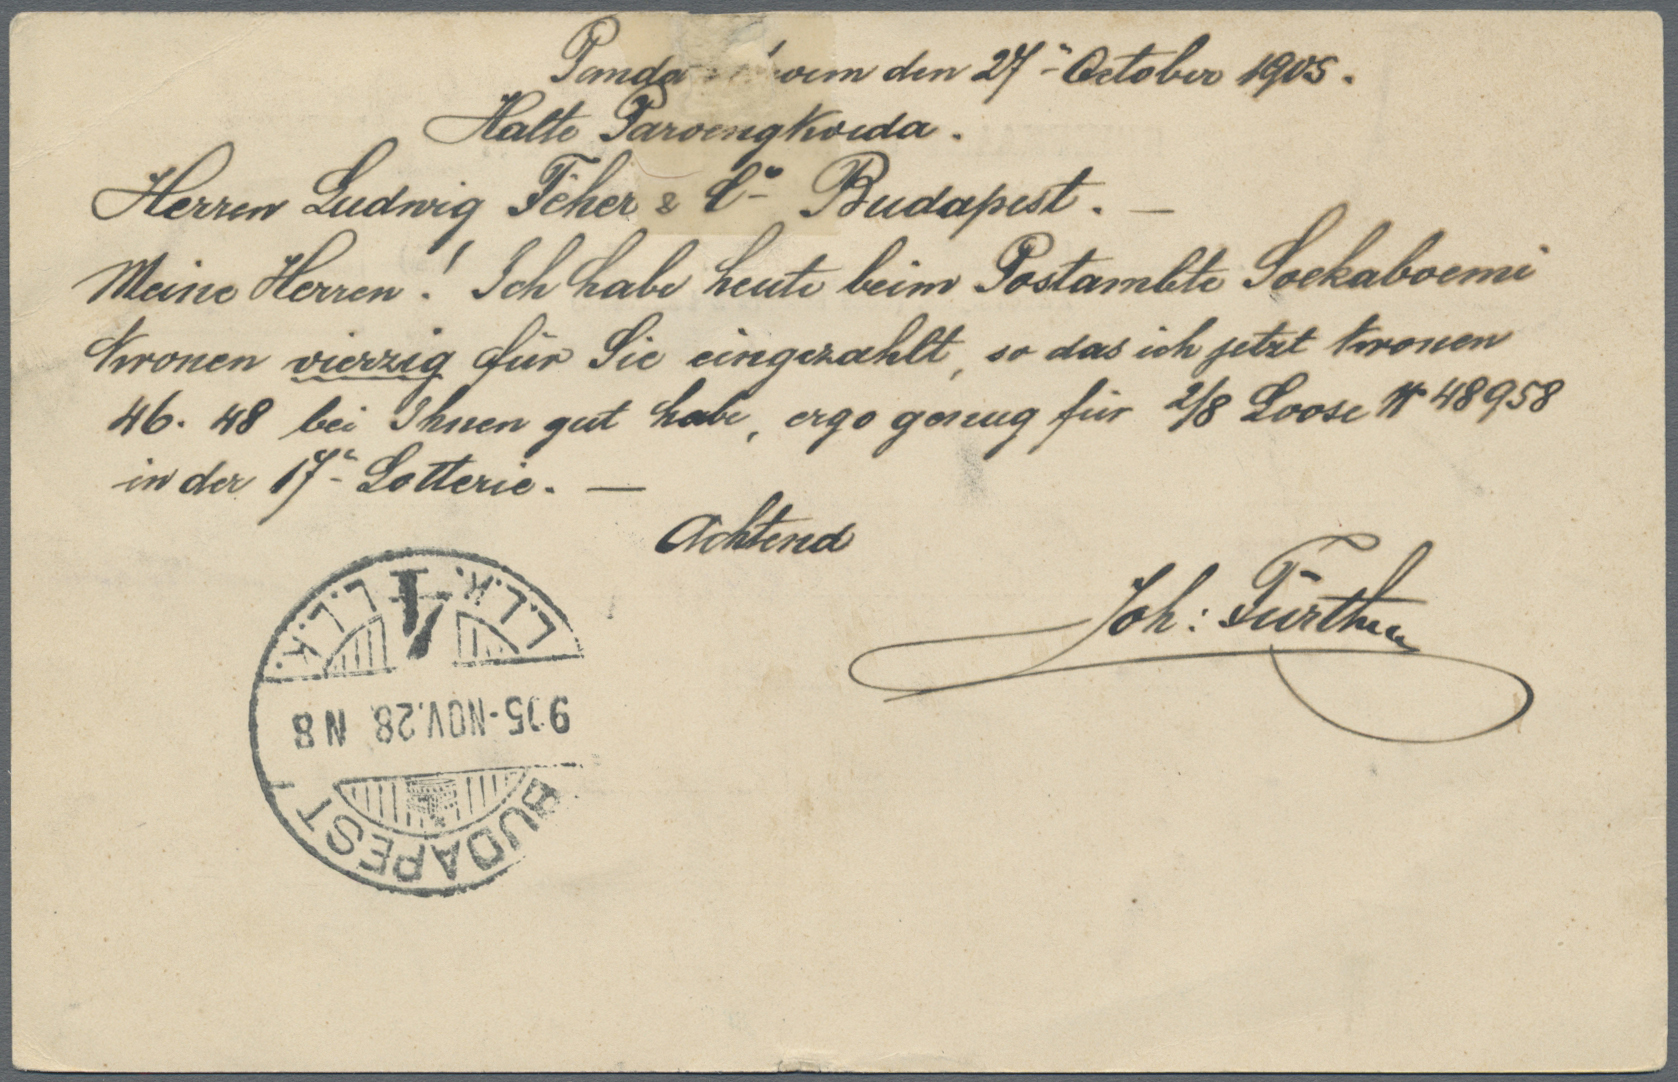 den 27" October 1905.
Halte Paroengkoeda.
Herren Ludwig Féher & Co Budapest. —
Meine Herren! Ich habe heute beim Postambte Soekaboemi
Kronen vierzig für Sie eingezahlt, so das ich jetzt Kronen
46. 48 bei Ihnen gut habe, ergo genug für 2/8 Loose № 48958
in der 17" Lotterie. —
Achtend
Joh:
L.L.K. L.L.K.
905-NOV.28 N 8
BUDAPEST